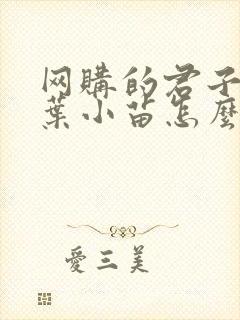 网購的君子
葉小苗怎麼
愛三美